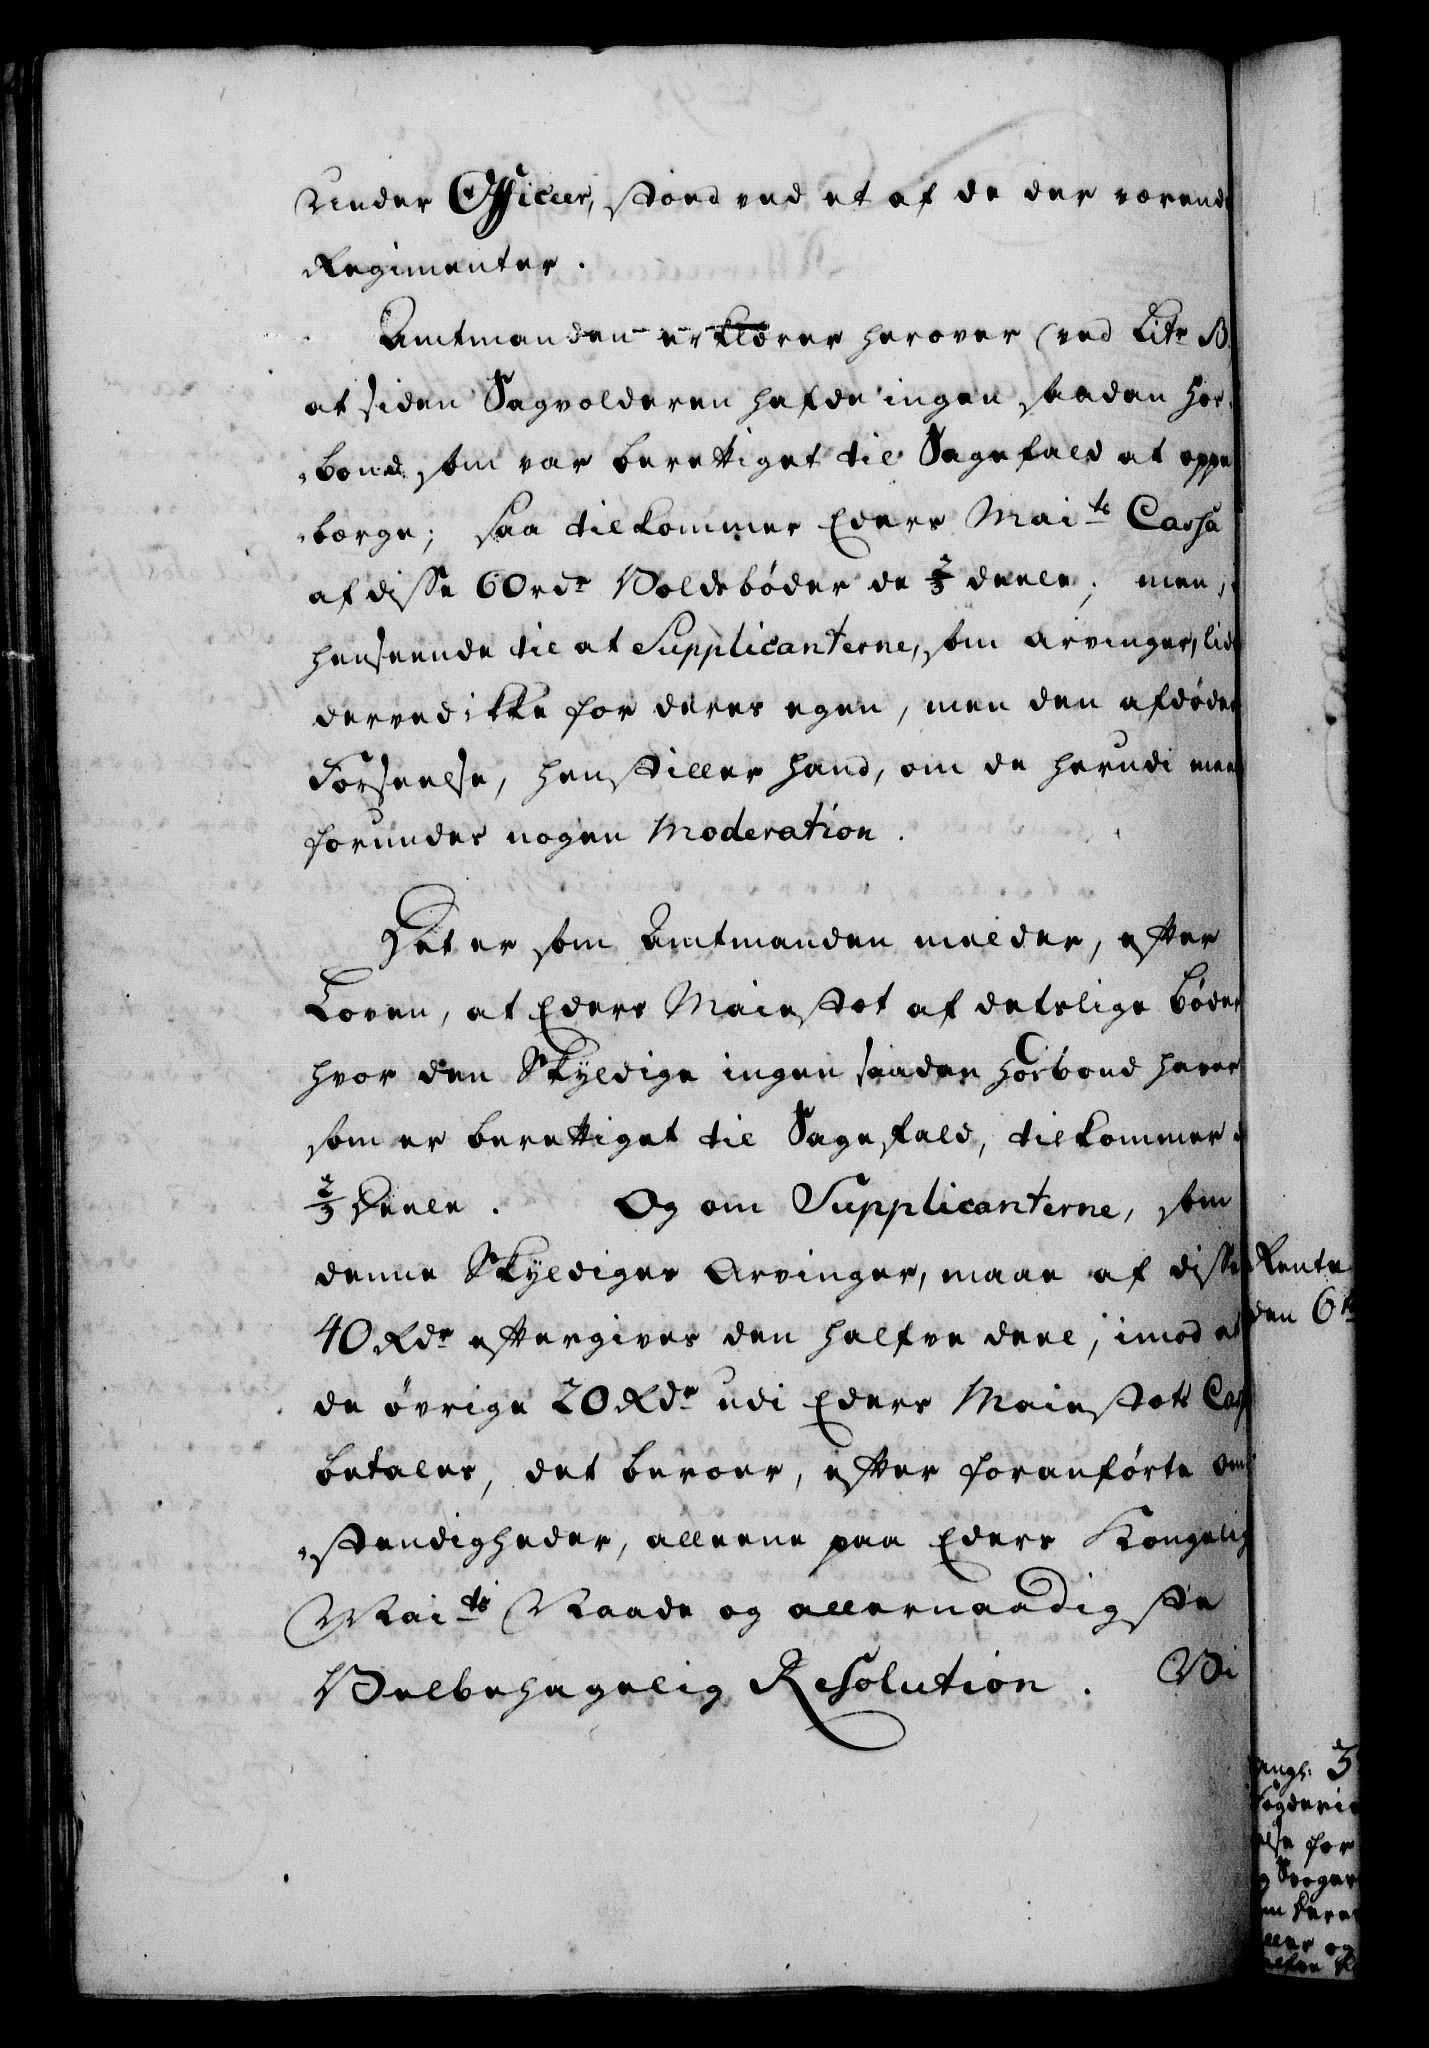 Under Officeer, stoed ved et af de der værende
Regimenter.
Amtmanden erklærer herover /: ved Litr B.
at siden Sagvolderen hafde ingen saadan Hos-
-bond som var berettiget til Sagefald at oppe
-børge; saa tilkommer Eders Maits Cassa
af disse 60 rdr Voldsbøder de 2/3 deele; men, i
henseende til at Supplicanterne, som arvinger, lide
derved ikke for deres egen, men den afdødes
Forseelse, henstiller hand, om de herudi maae
forundes nogen Moderation.
Det er som Amtmanden melder, efter
Loven, at Eders Maiestet af detslige bøder
hvor den Skyldige ingen saadan Hosbond haver
som er berettiget til Sagefald, tilkommer
2/3 Deele. Og om Supplicanterne, som
denne Skyldiges Arvinger, maae af disse
40 Rdr eftergives den halfve deel, imod at
de øvrige 20 Rdr udi Eders Maiestets Cass
betales, det beroer, efter foranførte om-
-stendigheder, alleene paa Eders Kongelig
Maits Naade og allernaadigste
Velbehagelig Resolution. Vi
Rente
den 6te